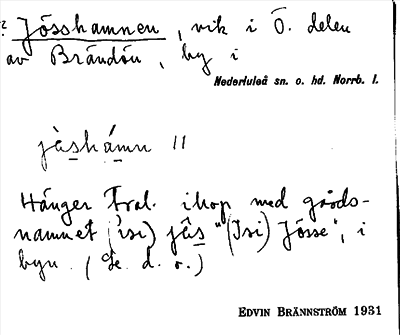 ? Jösshamnen, vik i Ö. delen
av Brändön, by i
Nederluleå sn. o. hd. Norrb. l.
jȧ̀s̲hámn II
Hänger trol. ihop med gårds-
namnet (isi) jâs̲ "(Isi) Jösse", i
byn. (Se d. o.)
EDVIN BRÄNNSTRÖM 1931